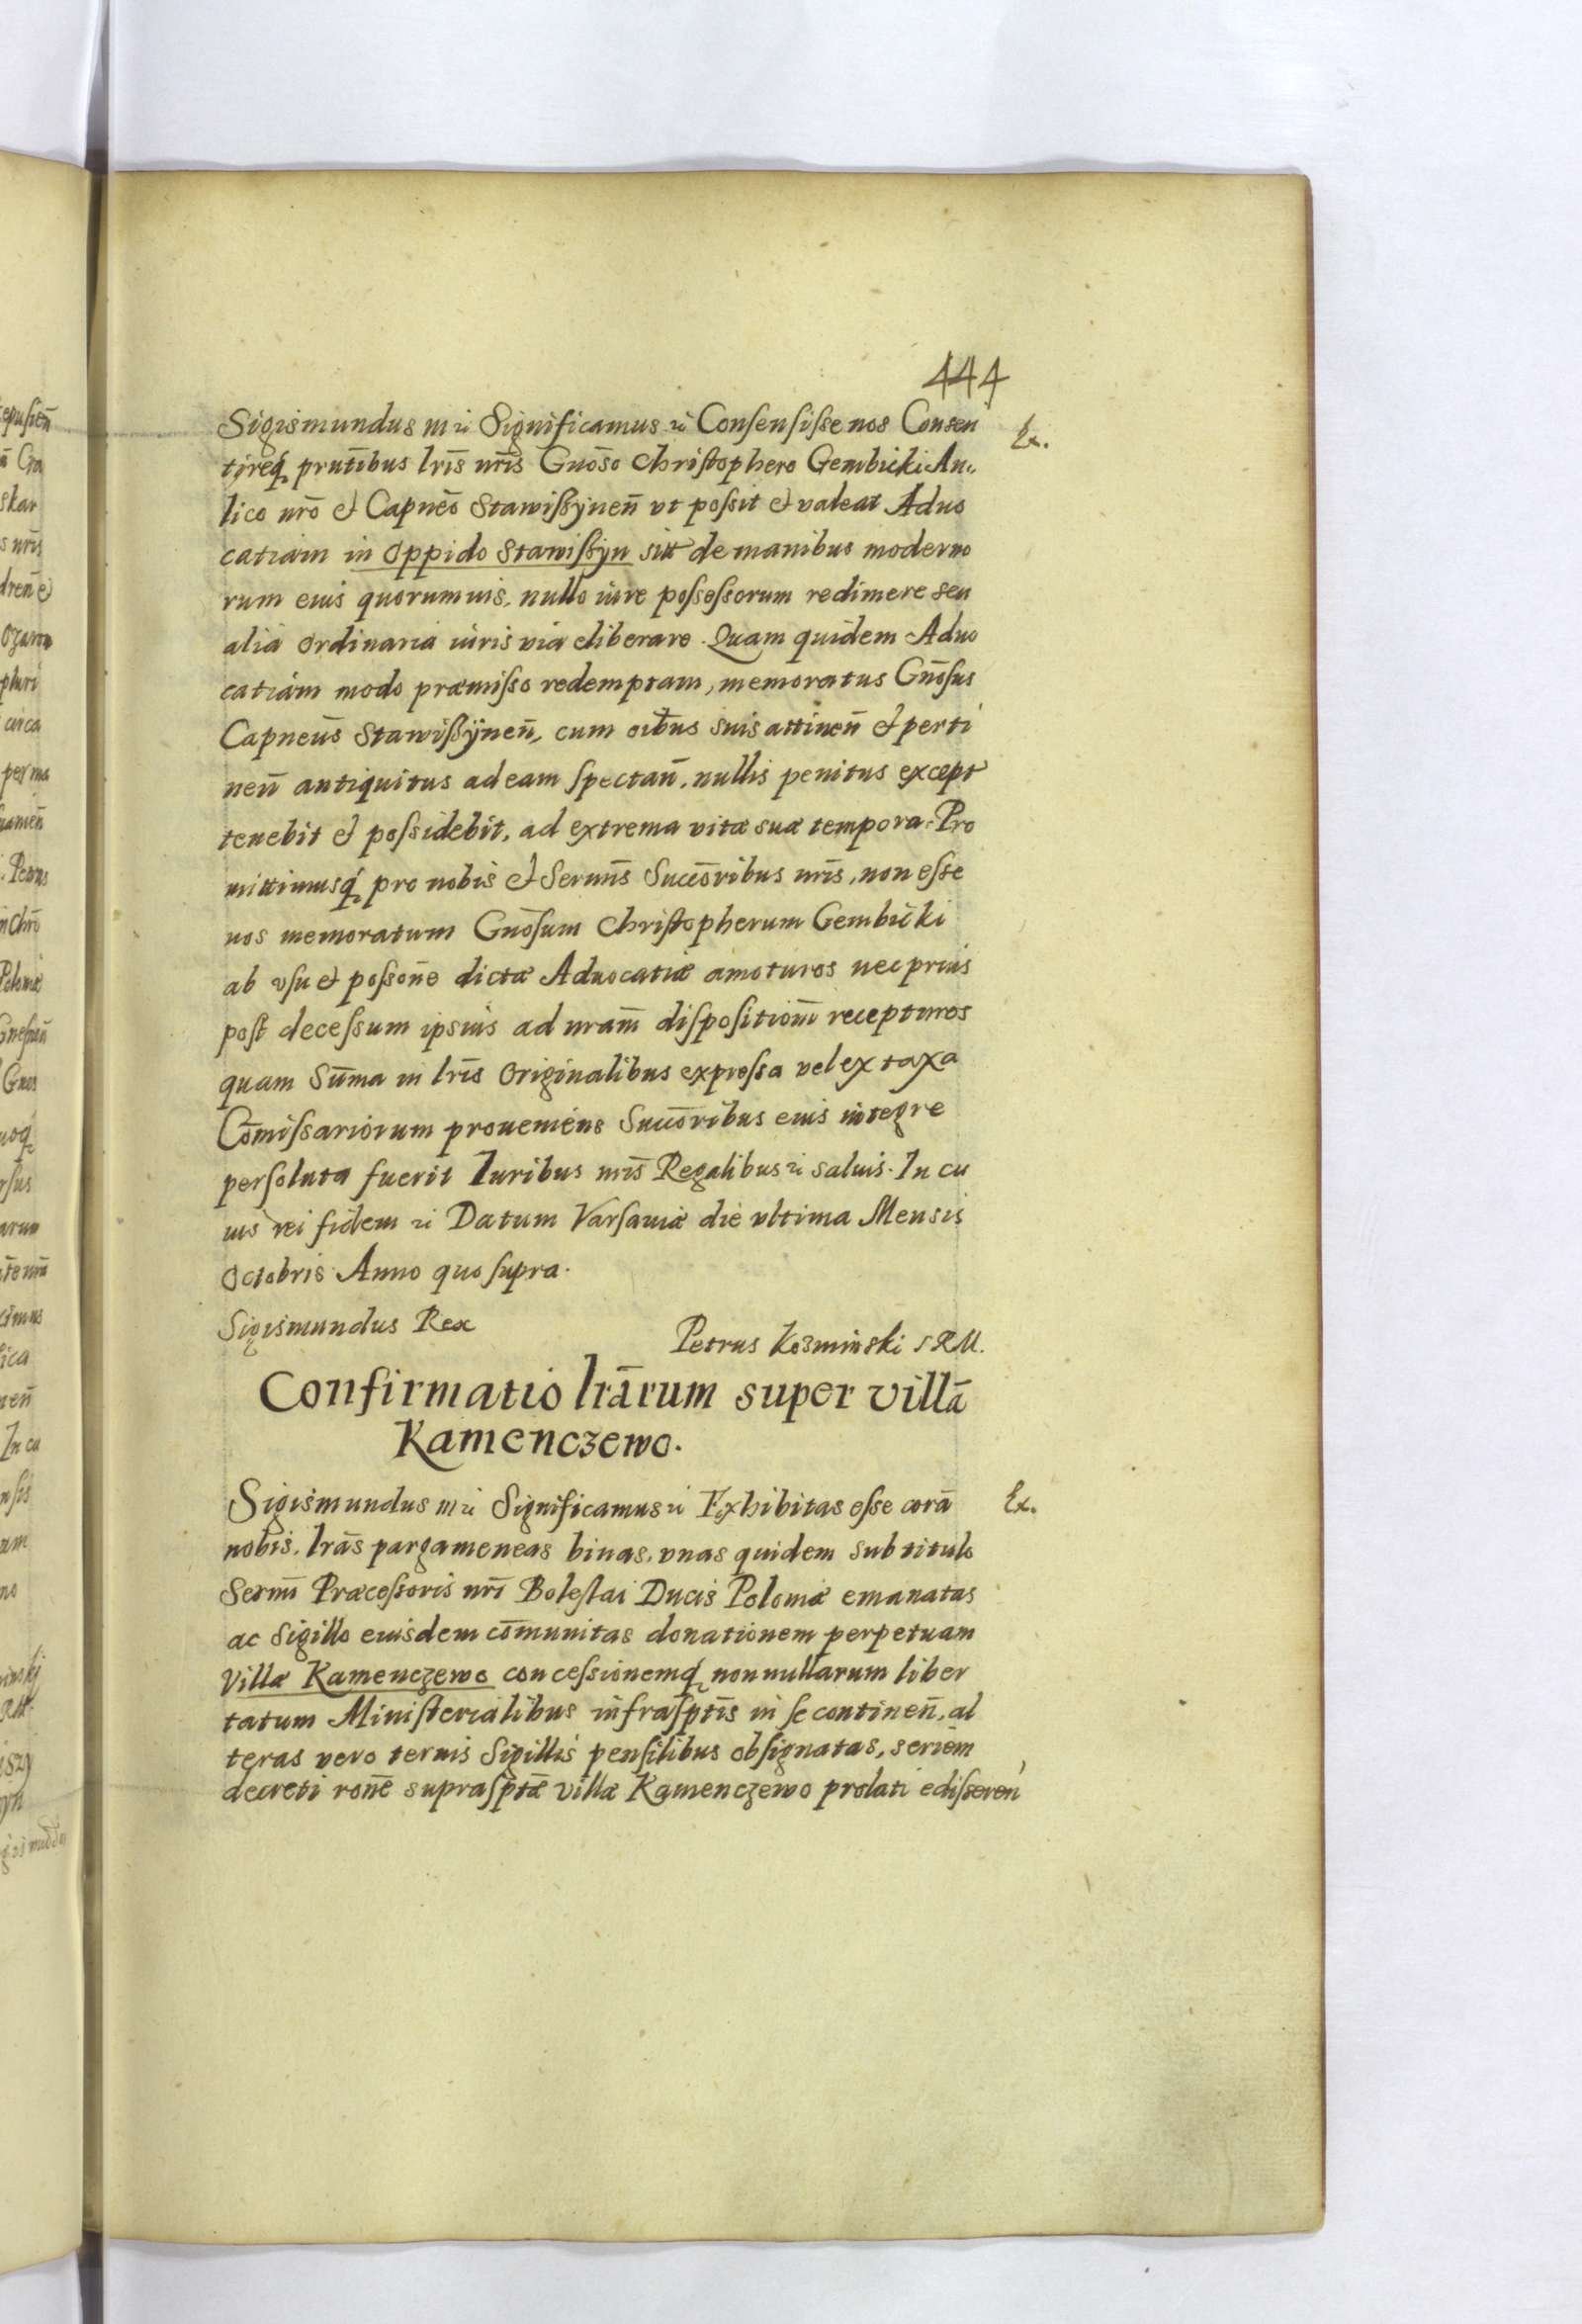 444
Sigismundus III etc Significamus etc Consensisse nos Consen
Ex.
tireq́ prntibus lrīs nrīs Gnōso Christophero Gembicki Au„
lico nrō et Capnēo Stawißÿnen̄ vt possit et valeat Aduo
catiam in oppido Stawißÿn sitt de manibus moderno
rum eius quorumuis, nullo iure possessorum redimere seu
alia ordinaria iuris via eliberare. Quam quidem Aduo
catiam modo præmisso redemptam, memoratus Gnōsus
Capneūs Stawißÿnen̄, cum oībus suis attinen̄ et perti
nen̄ antiquitus ad eam spectan̄, nullis penitus except
tenebit et possidebit, ad extrema vitæ suæ tempora. Pro
mittimusq́ pro nobis et Sermīs Succōribus nrīs, non esse
nos memoratum Gnōsum Christopherum Gembicki
ab vsu et possōne dictæ Aduocatiæ amoturos nec prius
post decessum ipsius ad nram̄ dispositiom̄ recepturos
quam Sum̄a in lrīs originalibus expressa vel ex taxa
Com̄issariorum proueniens Succōribus eius integre
persoluta fuerit Iuribus nrīs Regalibus etc saluis. In cu
ius rei fidem etc Datum Varsauiæ die vltima Mensis
Octobris Anno quo supra.
Sigismundus Rex
Petrus Kozminski SRM.
Confirmatio lrārum super villā
Kamenczewo.
Sigismundus III etc Significamus etc Exhibitas esse corā
Ex.
nobis, lrās pargameneas binas, vnas quidem sub titulo
Sermī Præcessoris nrī Boleslai Ducis Poloniæ emanatas
ac Sigillo eiusdem com̄unitas donationem perpetuam
Villæ Kamenczewo concessionemq́ nonnullarum liber
tatum Ministerialibus infrasptīs in se continen̄, al
teras vero ternis Sigillis pensilibus obsignatas, seriem
decreti ronē suprasptǣ villæ Kamenczewo prolati edisseren